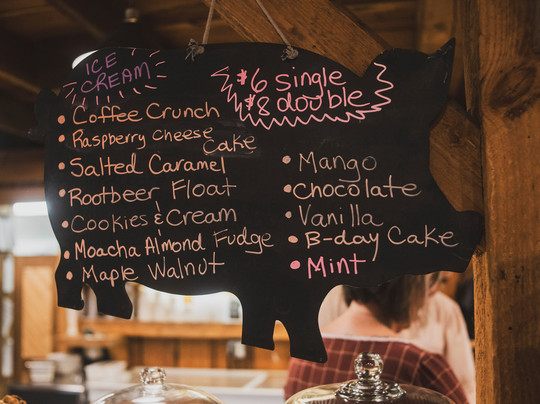 ICE
CREAM
$6 single
$8 double
• Coffee Crunch
• Raspberry cheese
Cake
• Salted Caramel
• Rootbeer Float
• Cookies & Cream
• Moacha Almond Fudge
• Maple Walnut
• Mango
• chocolate
• Vanilla
• B-day Cake
• Mint